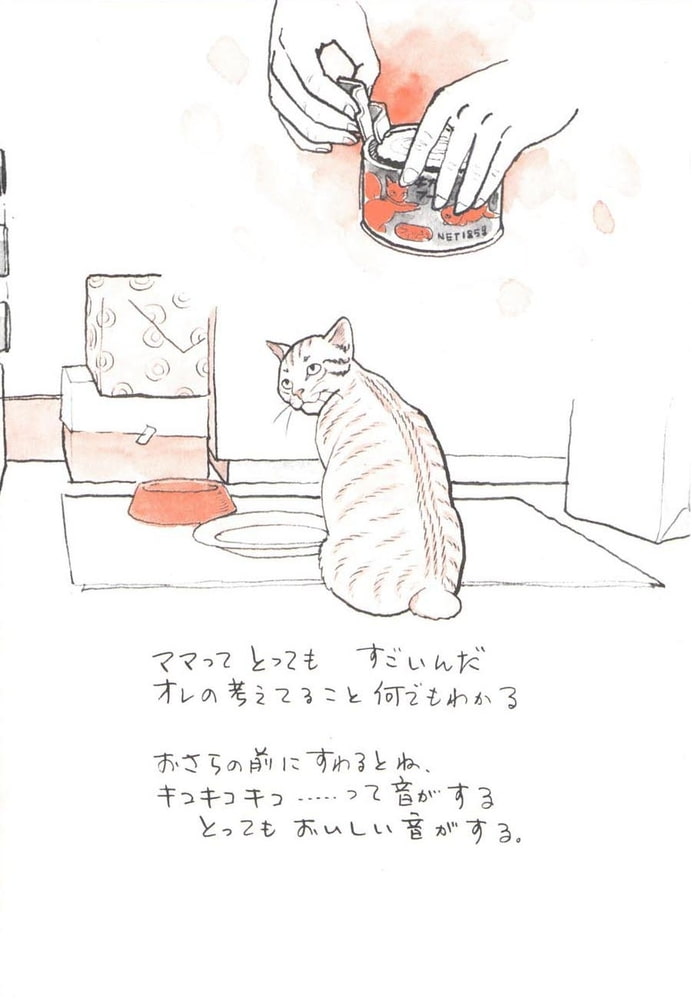 NET185g
ママって とっても すごいんだ
オレの考えてること何でもわかる
おさらの前にすわるとね、
キコキコキコ……って音がする
とっても おいしい音がする。